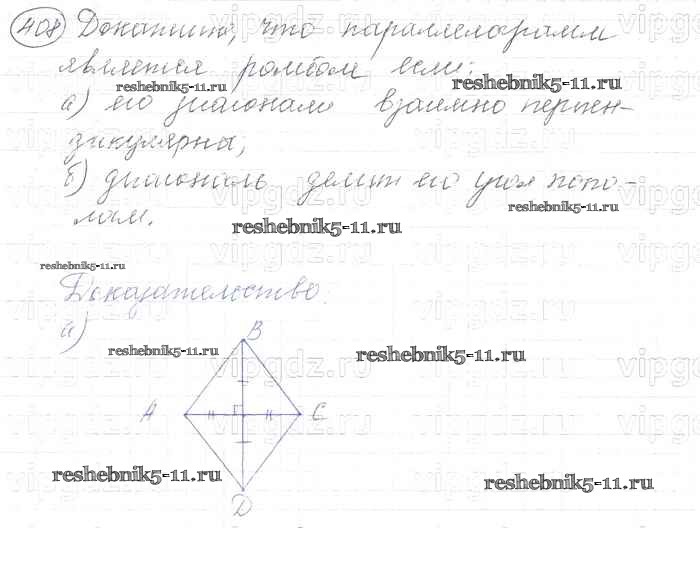 408 Докажите, что параллелограмм
является ромбом если:
reshebnik5-11.ru reshebnik5-11.ru
а) его диагонали взаимно перпен-
дикулярны;
б) диагональ делит его угол попо-
reshebnik5-11.ru
лам.
reshebnik5-11.ru
reshebnik5-11.ru
Доказательство:
а)
B
reshebnik5-11.ru reshebnik5-11.ru
A C
reshebnik5-11.ru reshebnik5-11.ru
D